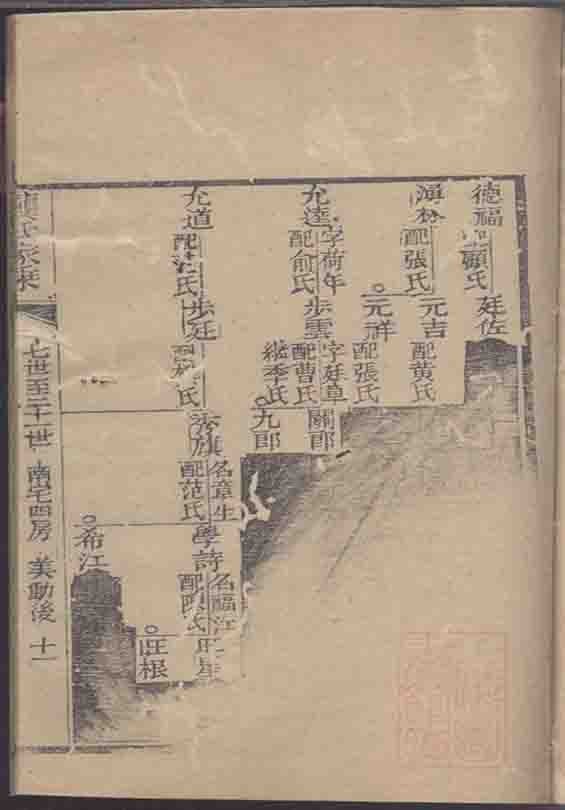 德福 配顧氏 廷佐
配張氏 元吉 配黃氏
元祥 配張氏
允達 字荷年 配俞氏 步雲 字廷章 配曹氏 繼季氏 關郎
九郎
允道 配汪氏 步廷 配 氏 旂 名章生 配范氏 學詩 名福江 配 氏 旺星
旺根
希江
七世至二十一世 南宅四房 美勛後 十一